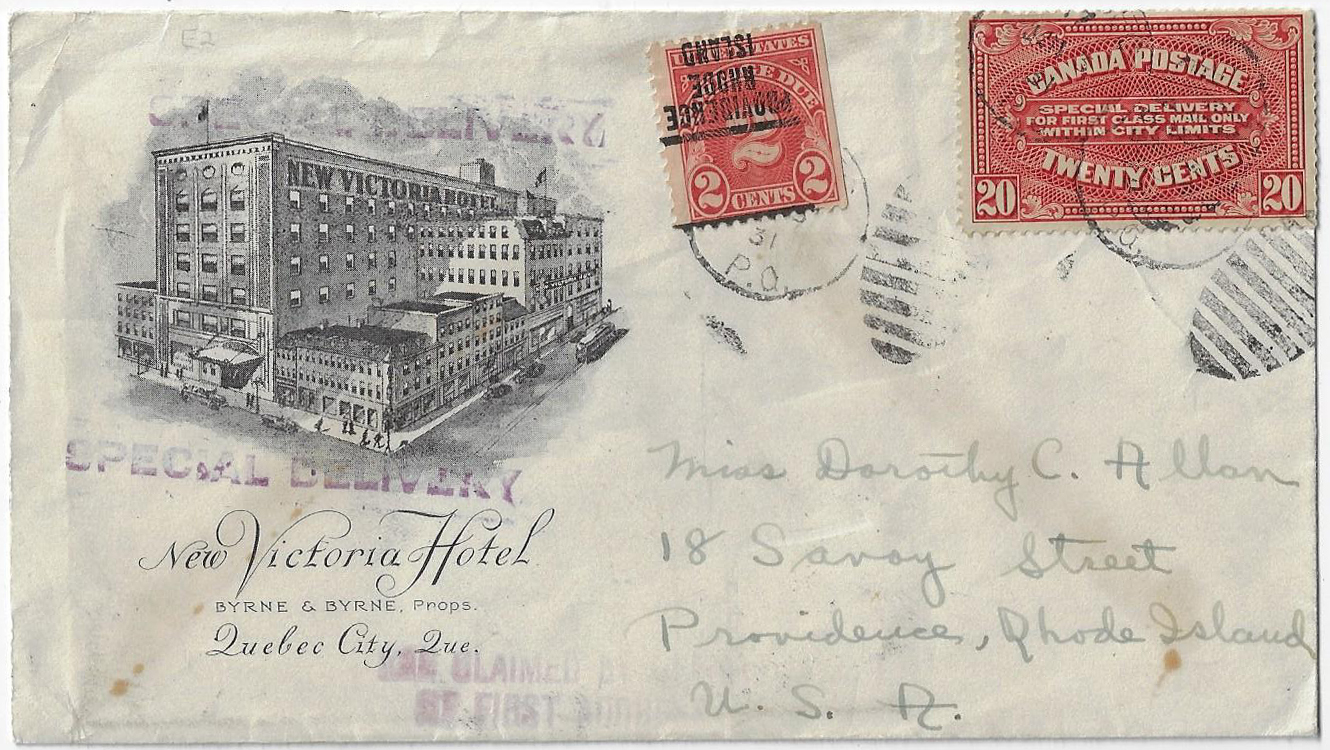 E2
SPECIAL DELIVERY
NEW VICTORIA HOTEL
SPECIAL DELIVERY
New Victoria Hotel
BYRNE & BYRNE, Props.
Quebec City, Que.
CLAIMED
OF FIRST
UNITED STATES
POSTAGE DUE
PROVIDENCE
RHODE
ISLAND
2
2 CENTS 2
31
P.Q.
CANADA POSTAGE
SPECIAL DELIVERY
FOR FIRST CLASS MAIL ONLY
WITHIN CITY LIMITS
TWENTY CENTS
20 20
Miss Dorothy C. Allan
18 Savoy Street
Providence, Rhode Island
U. S. A.